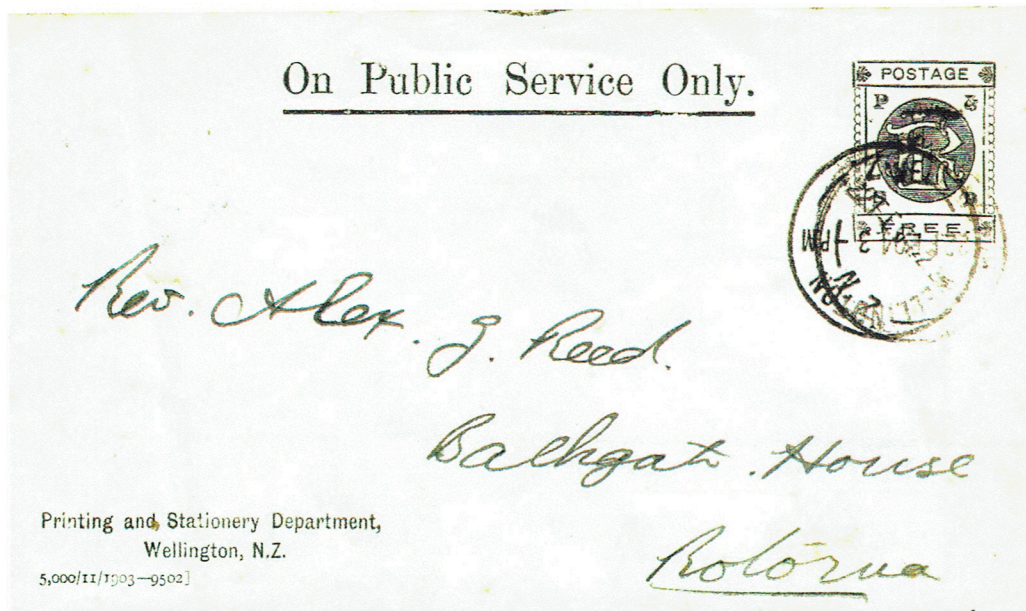 On Public Service Only.
POSTAGE
P & S
D
FREE.
3-PM
Rev. Alex. J. Reed.
Bathgate House
Rotorua
Printing and Stationery Department,
Wellington, N.Z.
5,000/11/1903—9502]